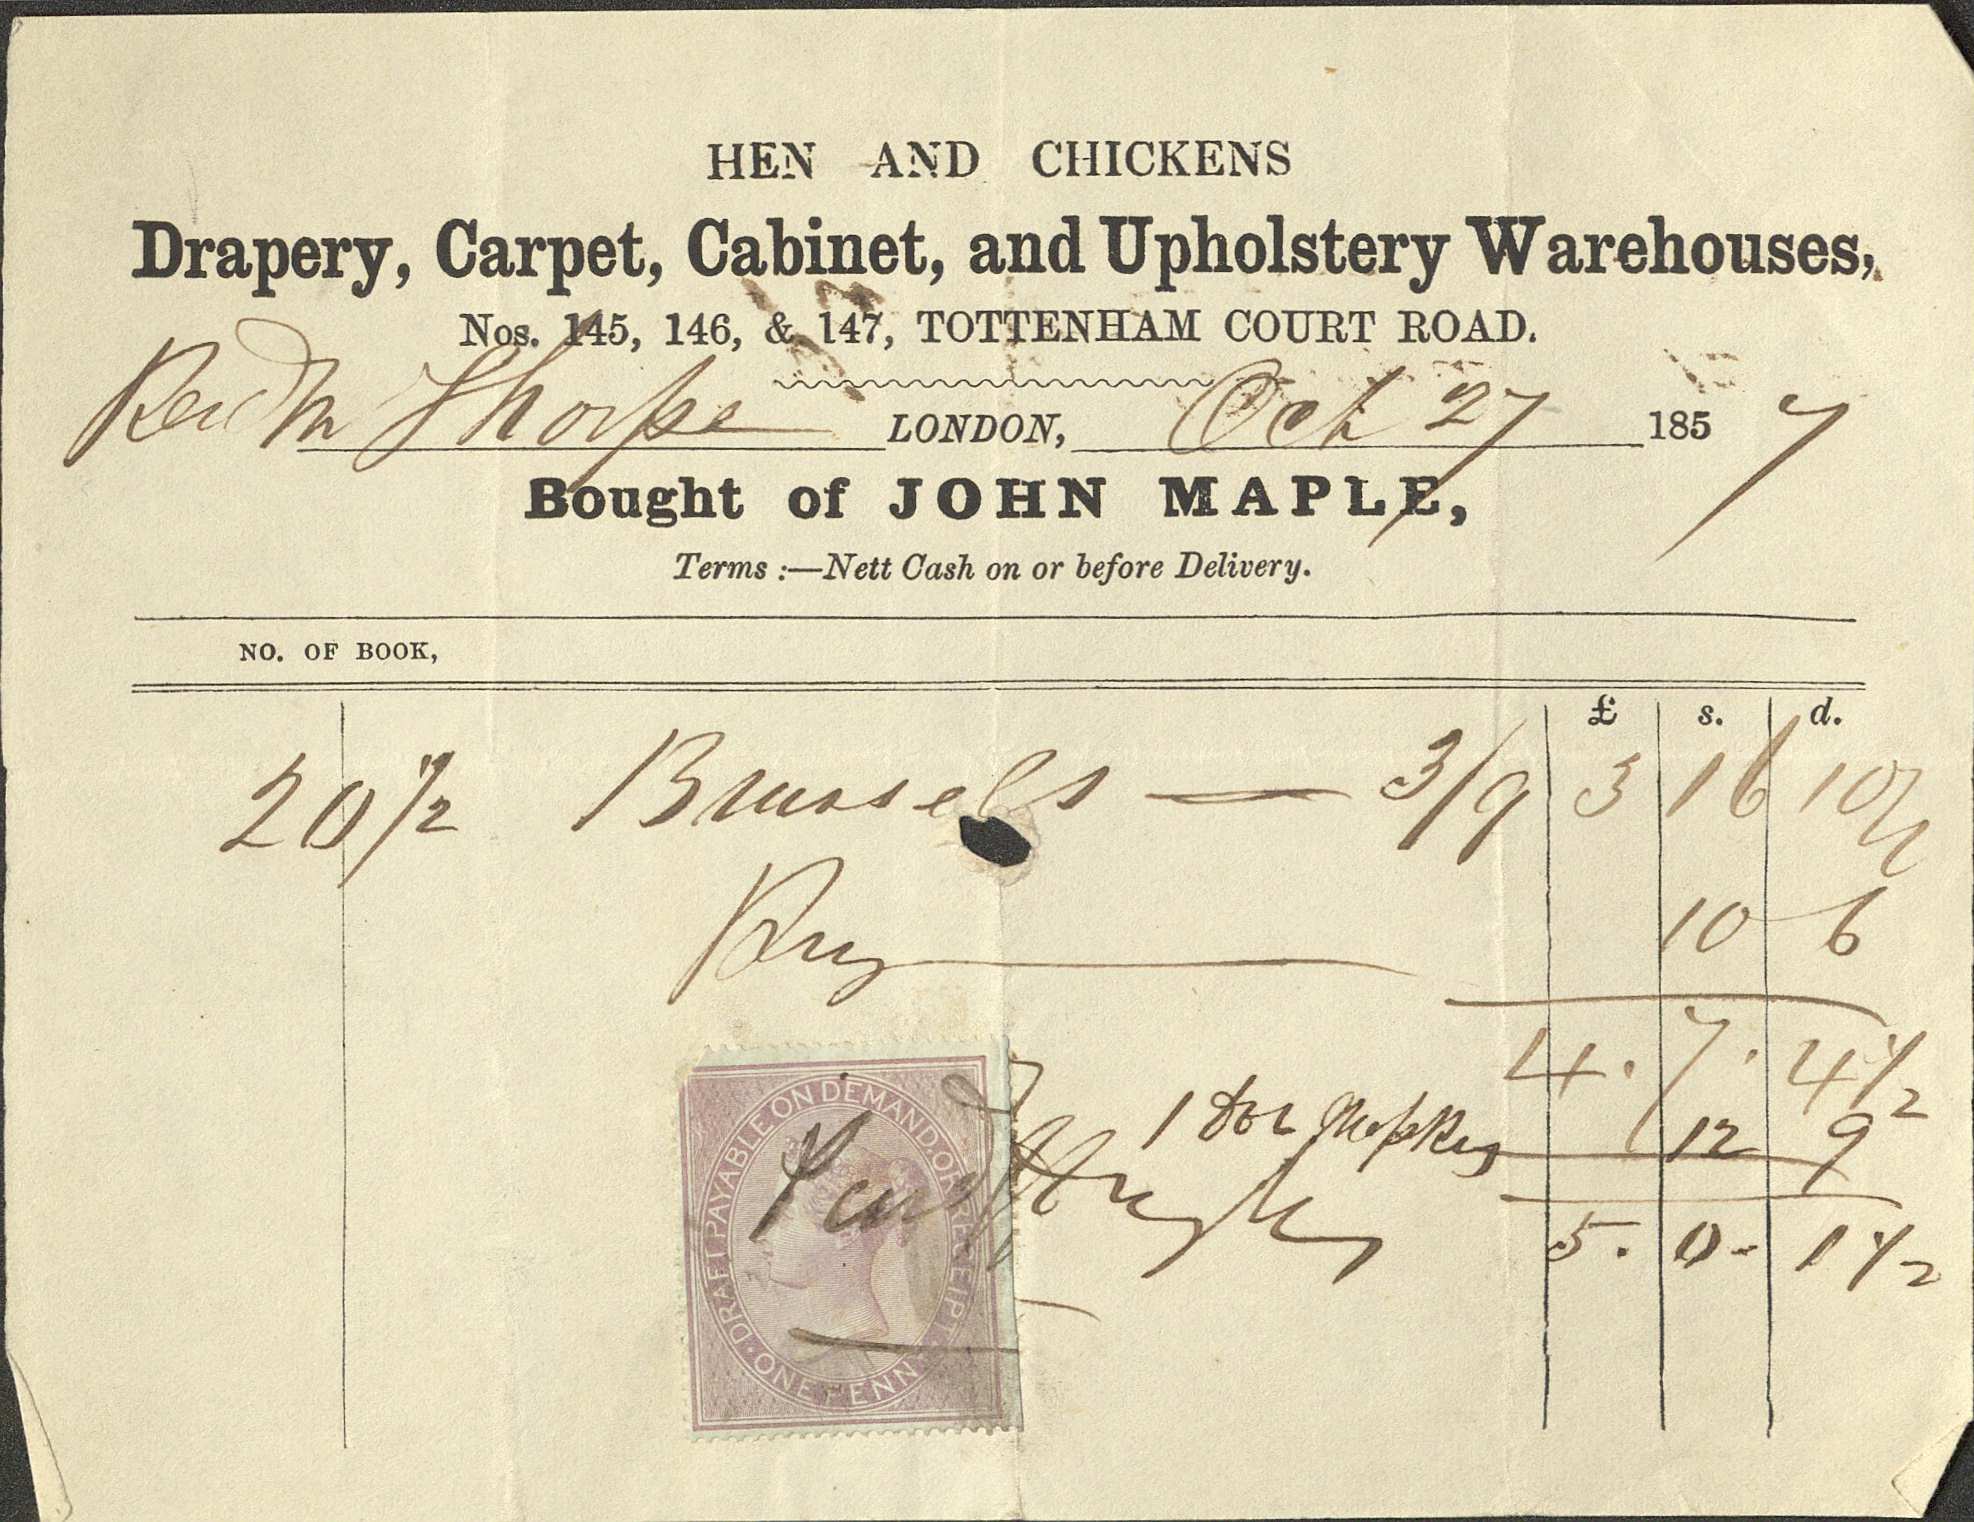 HEN AND CHICKENS
Drapery, Carpet, Cabinet, and Upholstery Warehouses,
Nos. 145, 146, & 147, TOTTENHAM COURT ROAD.
Revd Mr Thorpe LONDON, Oct 27 1857
Bought of JOHN MAPLE,
Terms :—Nett Cash on or before Delivery.
NO. OF BOOK,
£ s. d.
20 1/2 Brussels — 3/9 3 16 10 1/2
Rug 10 6
4 . 7 . 4 1/2
1 doz 12 9
5 . 0 - 1 1/2
DRAFT PAYABLE ON DEMAND OR RECEIPT
ONE PENNY
Paid